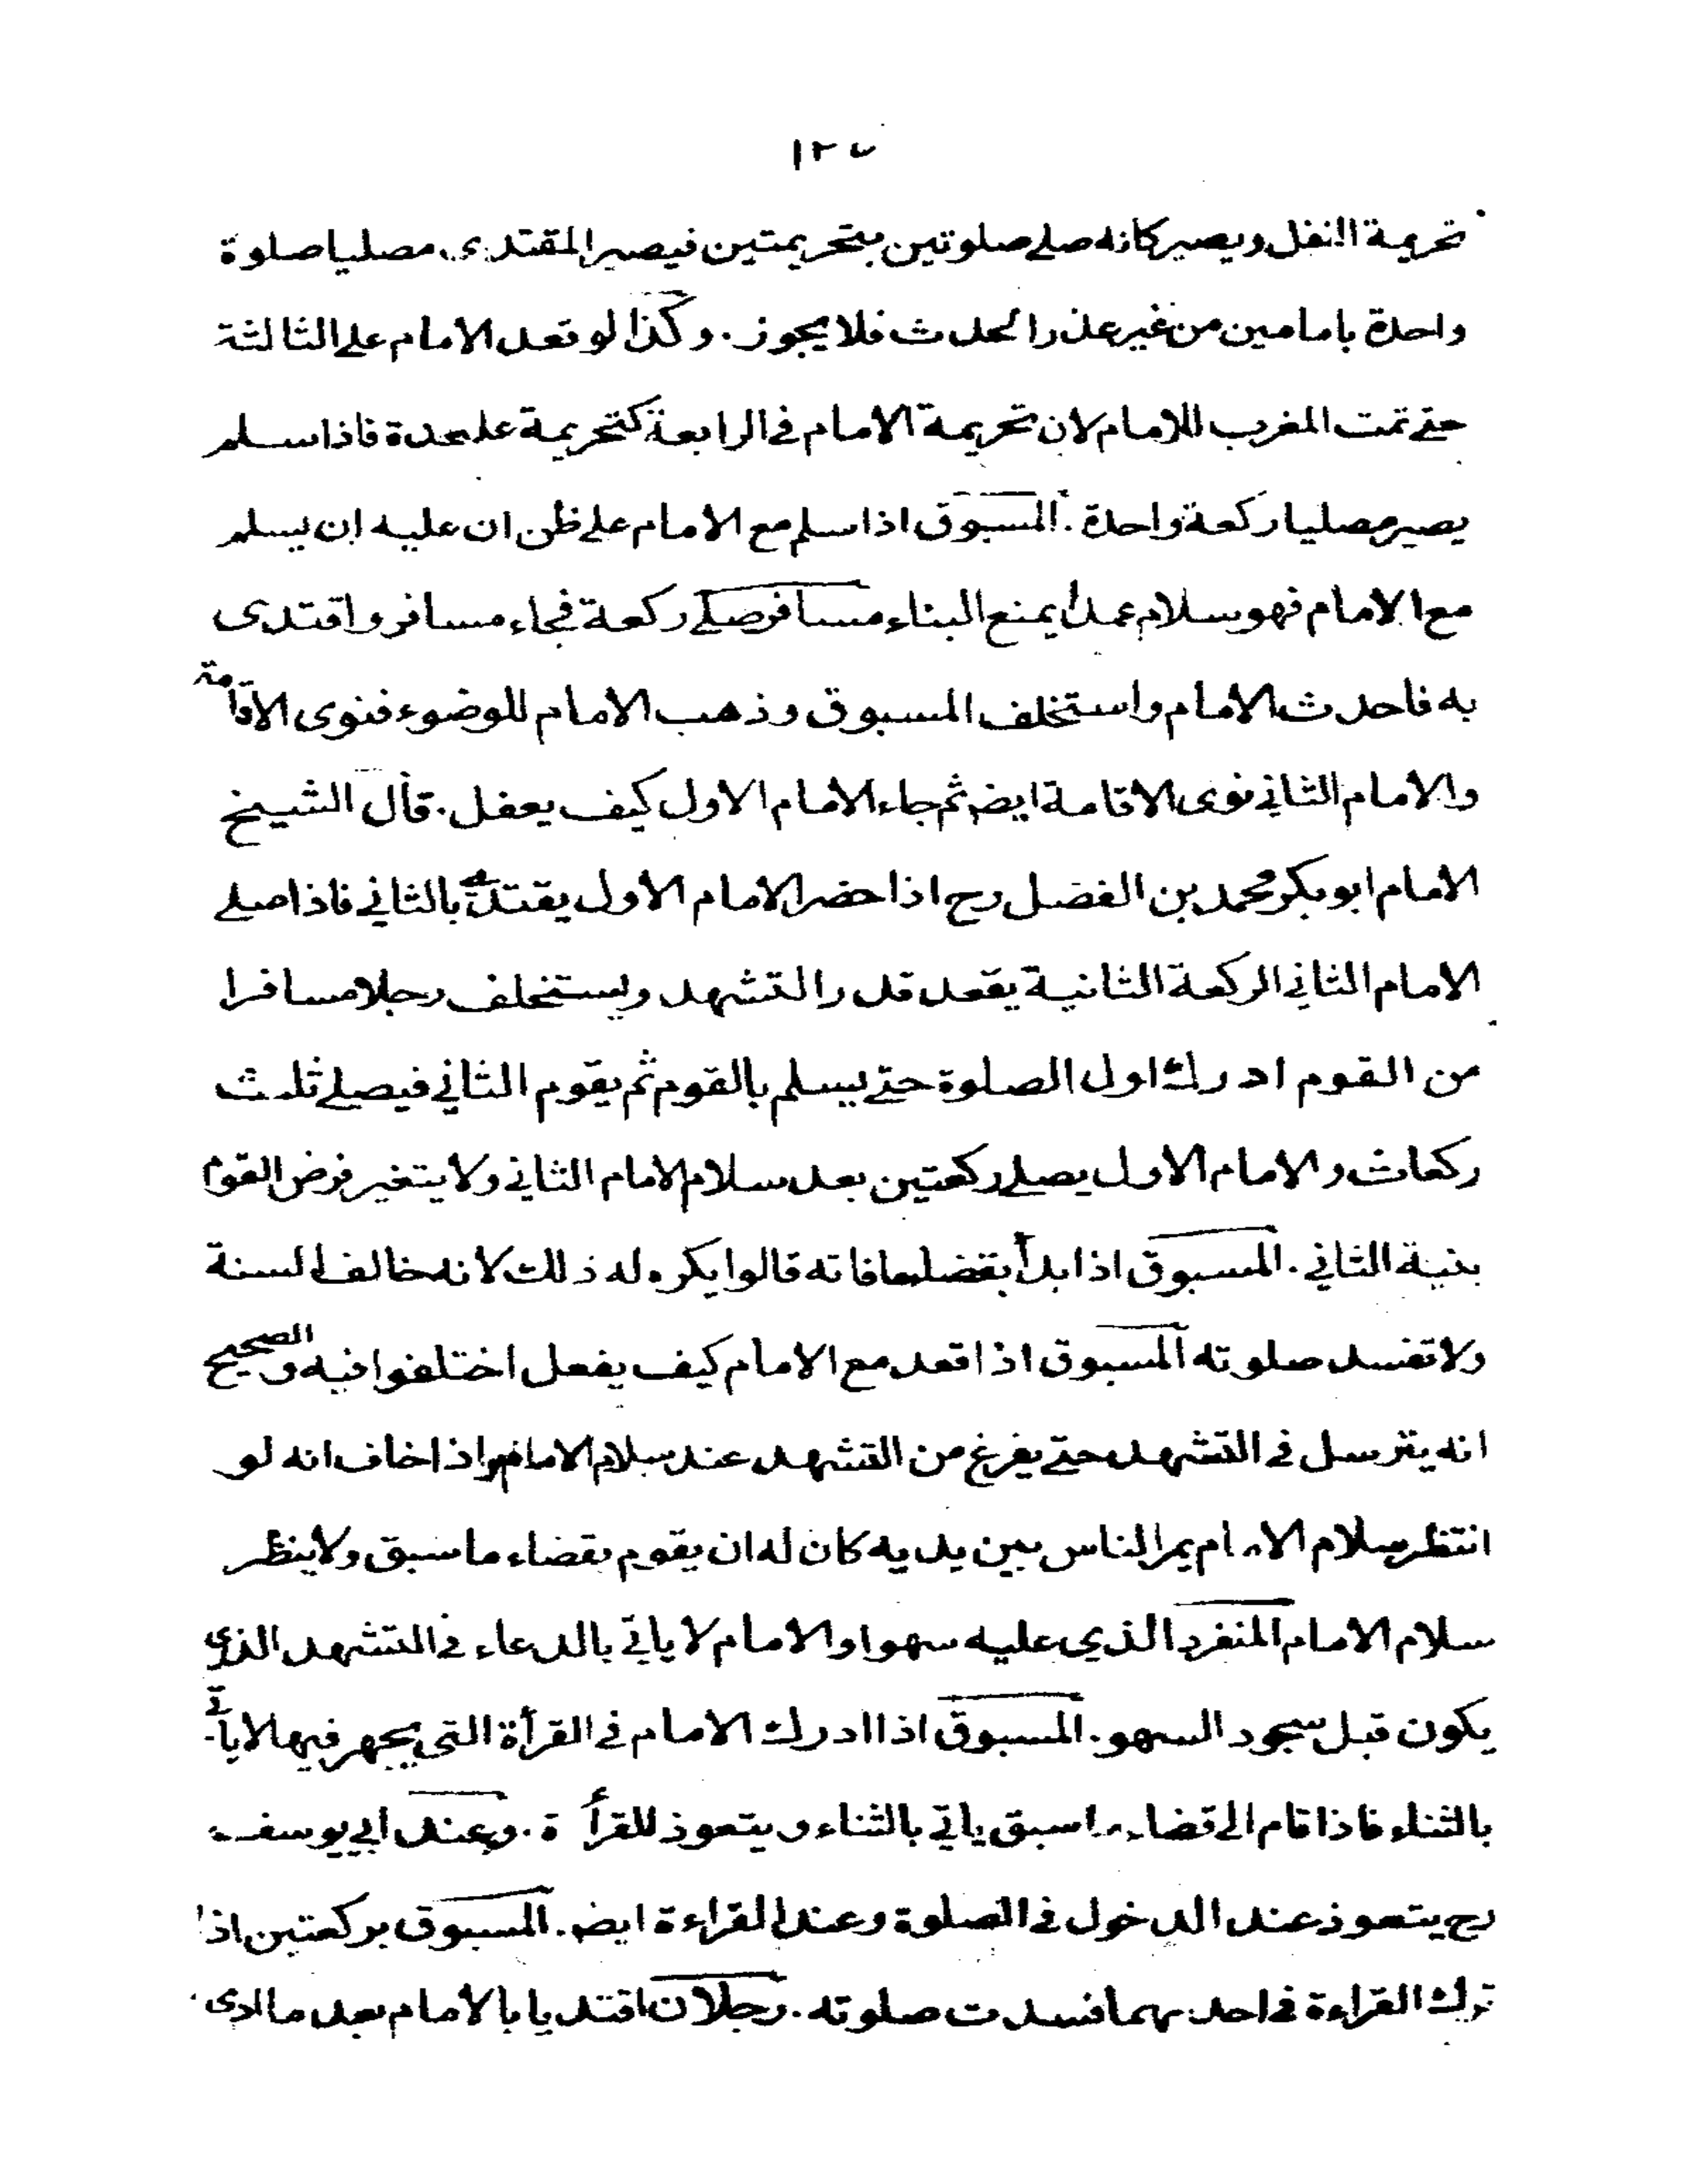 ١٢٧
تحريمة النفل ويصير كانه صلے صلوتين بتحريمتين فيصير المقتدى مصليا صلوة
واحدة بامامين من غير عذر الحدث فلا يجوز. وكذا لو قعد الامام علے الثالثة
حتے تمت المغرب للامام لان تحريمة الامام فے الرابعة كتحريمة علےحدة فاذا سلم
يصير مصليا ركعة واحدة. المسبوق اذا سلم مع الامام علے ظن ان عليه ان يسلم
مع الامام فهو سلام عمدا يمنع البناء مسافر صلے ركعة فجاء مسافر واقتدى
به فاحدث الامام واستخلف المسبوق وذهب الامام للوضوء فنوى الاقامة
والامام الثاني نوى الاقامة ايضه ثم جاء الامام الاول كيف يعفل. قال الشيخ
الامام ابو بكر محمد بن الفضل رح اذا حضر الامام الاول يقتدے بالثاني فاذا صلے
الامام الثاني الركعة الثانية يقعد قدر التشهد ويستخلف رجلا مسافرا
من القوم ادرك اول الصلوة حتے يسلم بالقوم ثم يقوم الثاني فيصلے ثلث
ركعات والامام الاول يصلے ركعتين بعد سلام الامام الثاني ولا يتغير فرض القوم
بنية الثاني. المسبوق اذا بدأ بقضاء ما فاته قالوا يكره له ذلك لانه خالف السنة
ولا تفسد صلوته المسبوق اذا قعد مع الامام كيف يفعل اختلفوا فيه والصحيح
انه يترسل فے التشهد حتے يفرغ من التشهد عند سلام الامام واذا خاف انه لو
انتظر سلام الامام يمر الناس بين يديه كان له ان يقوم بقضاء ما سبق ولا ينظر
سلام الامام المنفرد الذي عليه سهو او الامام لا ياتي بالدعاء فے التشهد الذي
يكون قبل سجود السهو. المسبوق اذا ادرك الامام فے القرأة التي يجهر فيها لا ياتي
بالثناء فاذا قام الى قضاء ما سبق ياتي بالثناء و يتعوذ للقرأة. وعند ابي يوسف
رح يتعوذ عند الدخول فے الصلوة وعند القراءة ايضه. المسبوق بركعتين اذا
ترك القراءة فے احدىهما فسدت صلوته. رجلان اقتديا بالامام بعد ما ادى